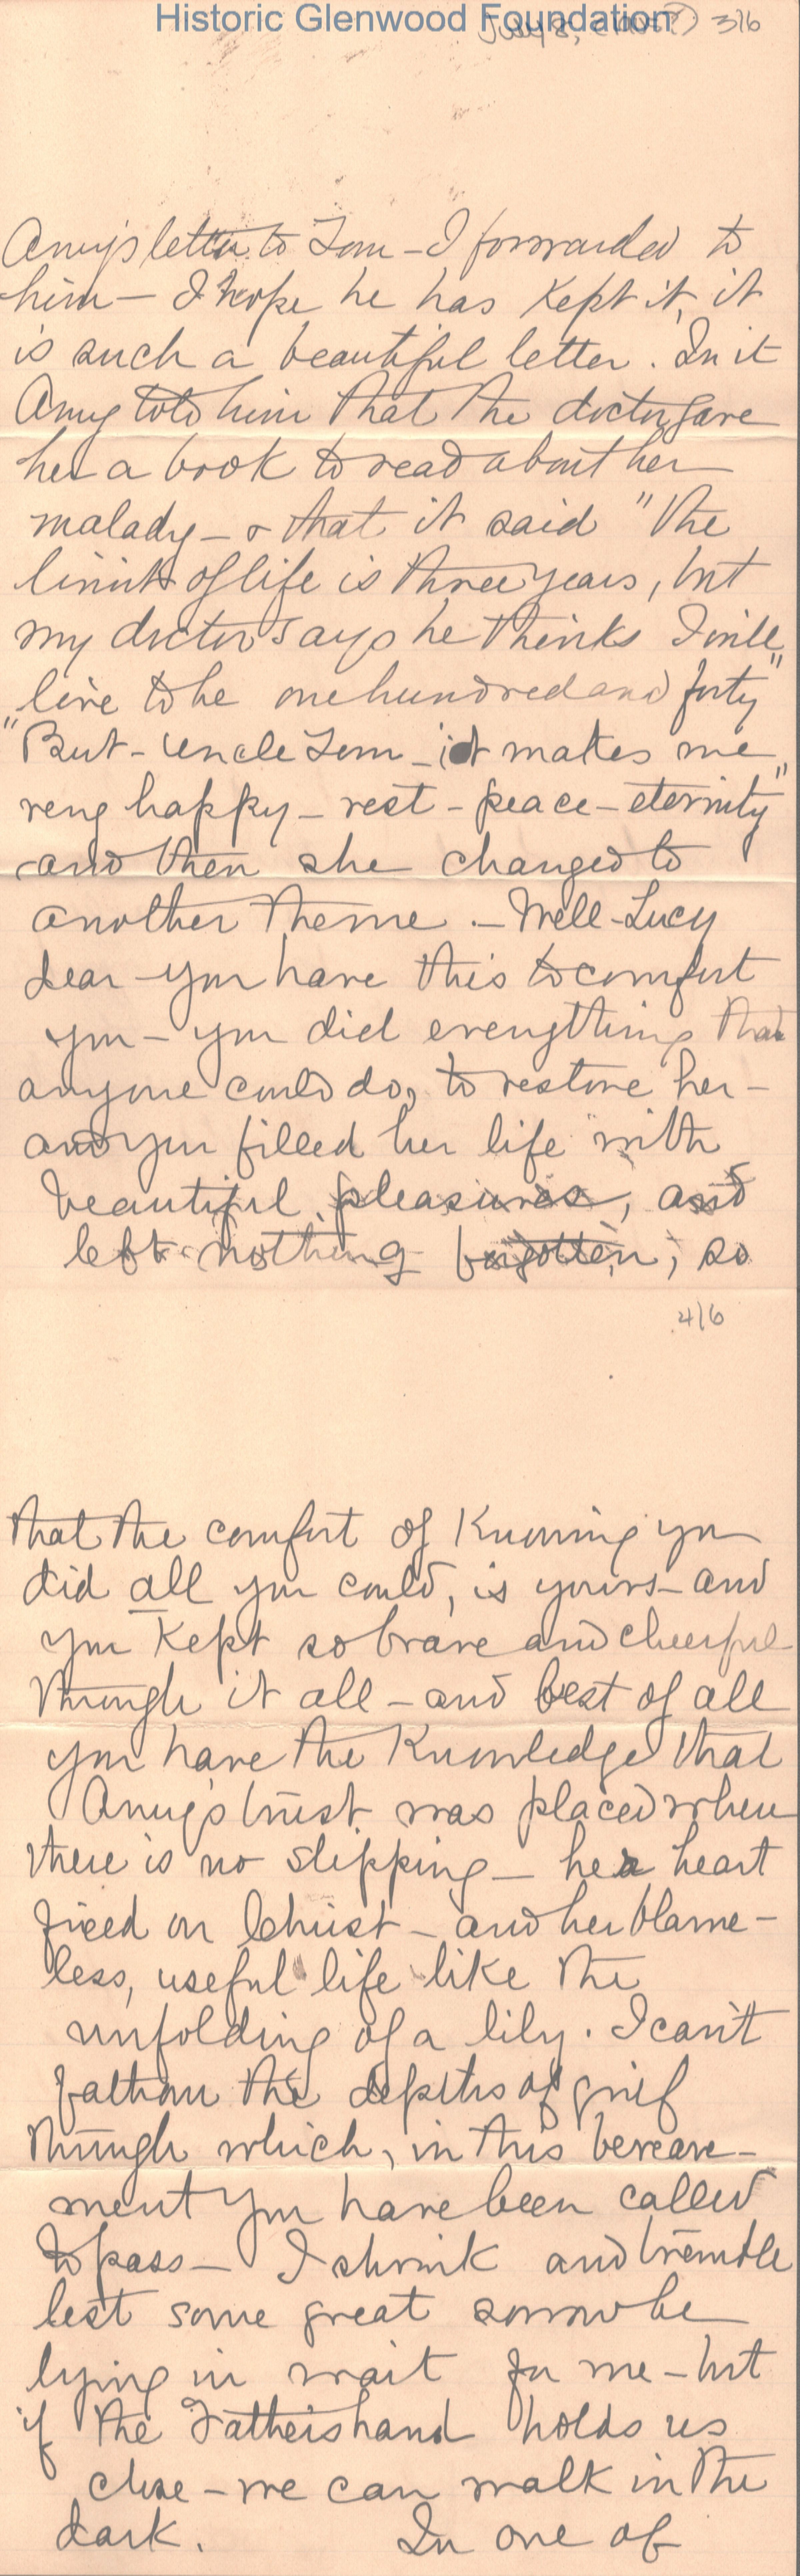 Historic Glenwood Foundation
July 8, 316
Amy's letter to Tom - I forwarded to
him - I hope he has kept it, it
is such a beautiful letter. In it
Amy told him that the doctor gave
her a book to read about her
malady - & that it said "the
limit of life is three years, but
my doctor says he thinks I will
live to be one hundred and forty"
"But - Uncle Tom - it makes me
very happy - rest - peace - eternity"
and then she changed to
another theme. - Well - Lucy
dear - you have this to comfort
you - you did everything that
anyone could do, to restore her -
and you filled her life with
beautiful pleasures, and
left nothing forgotten, so
416
that the comfort of knowing you
did all you could, is yours - and
you kept so brave and cheerful
through it all - and best of all
you have the knowledge that
Amy's trust was placed where
there is no slipping - her heart
fixed on Christ - and her blame-
less, useful life like the
unfolding of a lily. I can't
fathom the depths of grief
through which, in this bereave-
ment you have been called
to pass - I shrink and tremble
lest some great sorrow be
lying in wait for me - but
if the Father's hand holds us
close - we can walk in the
dark. In one of